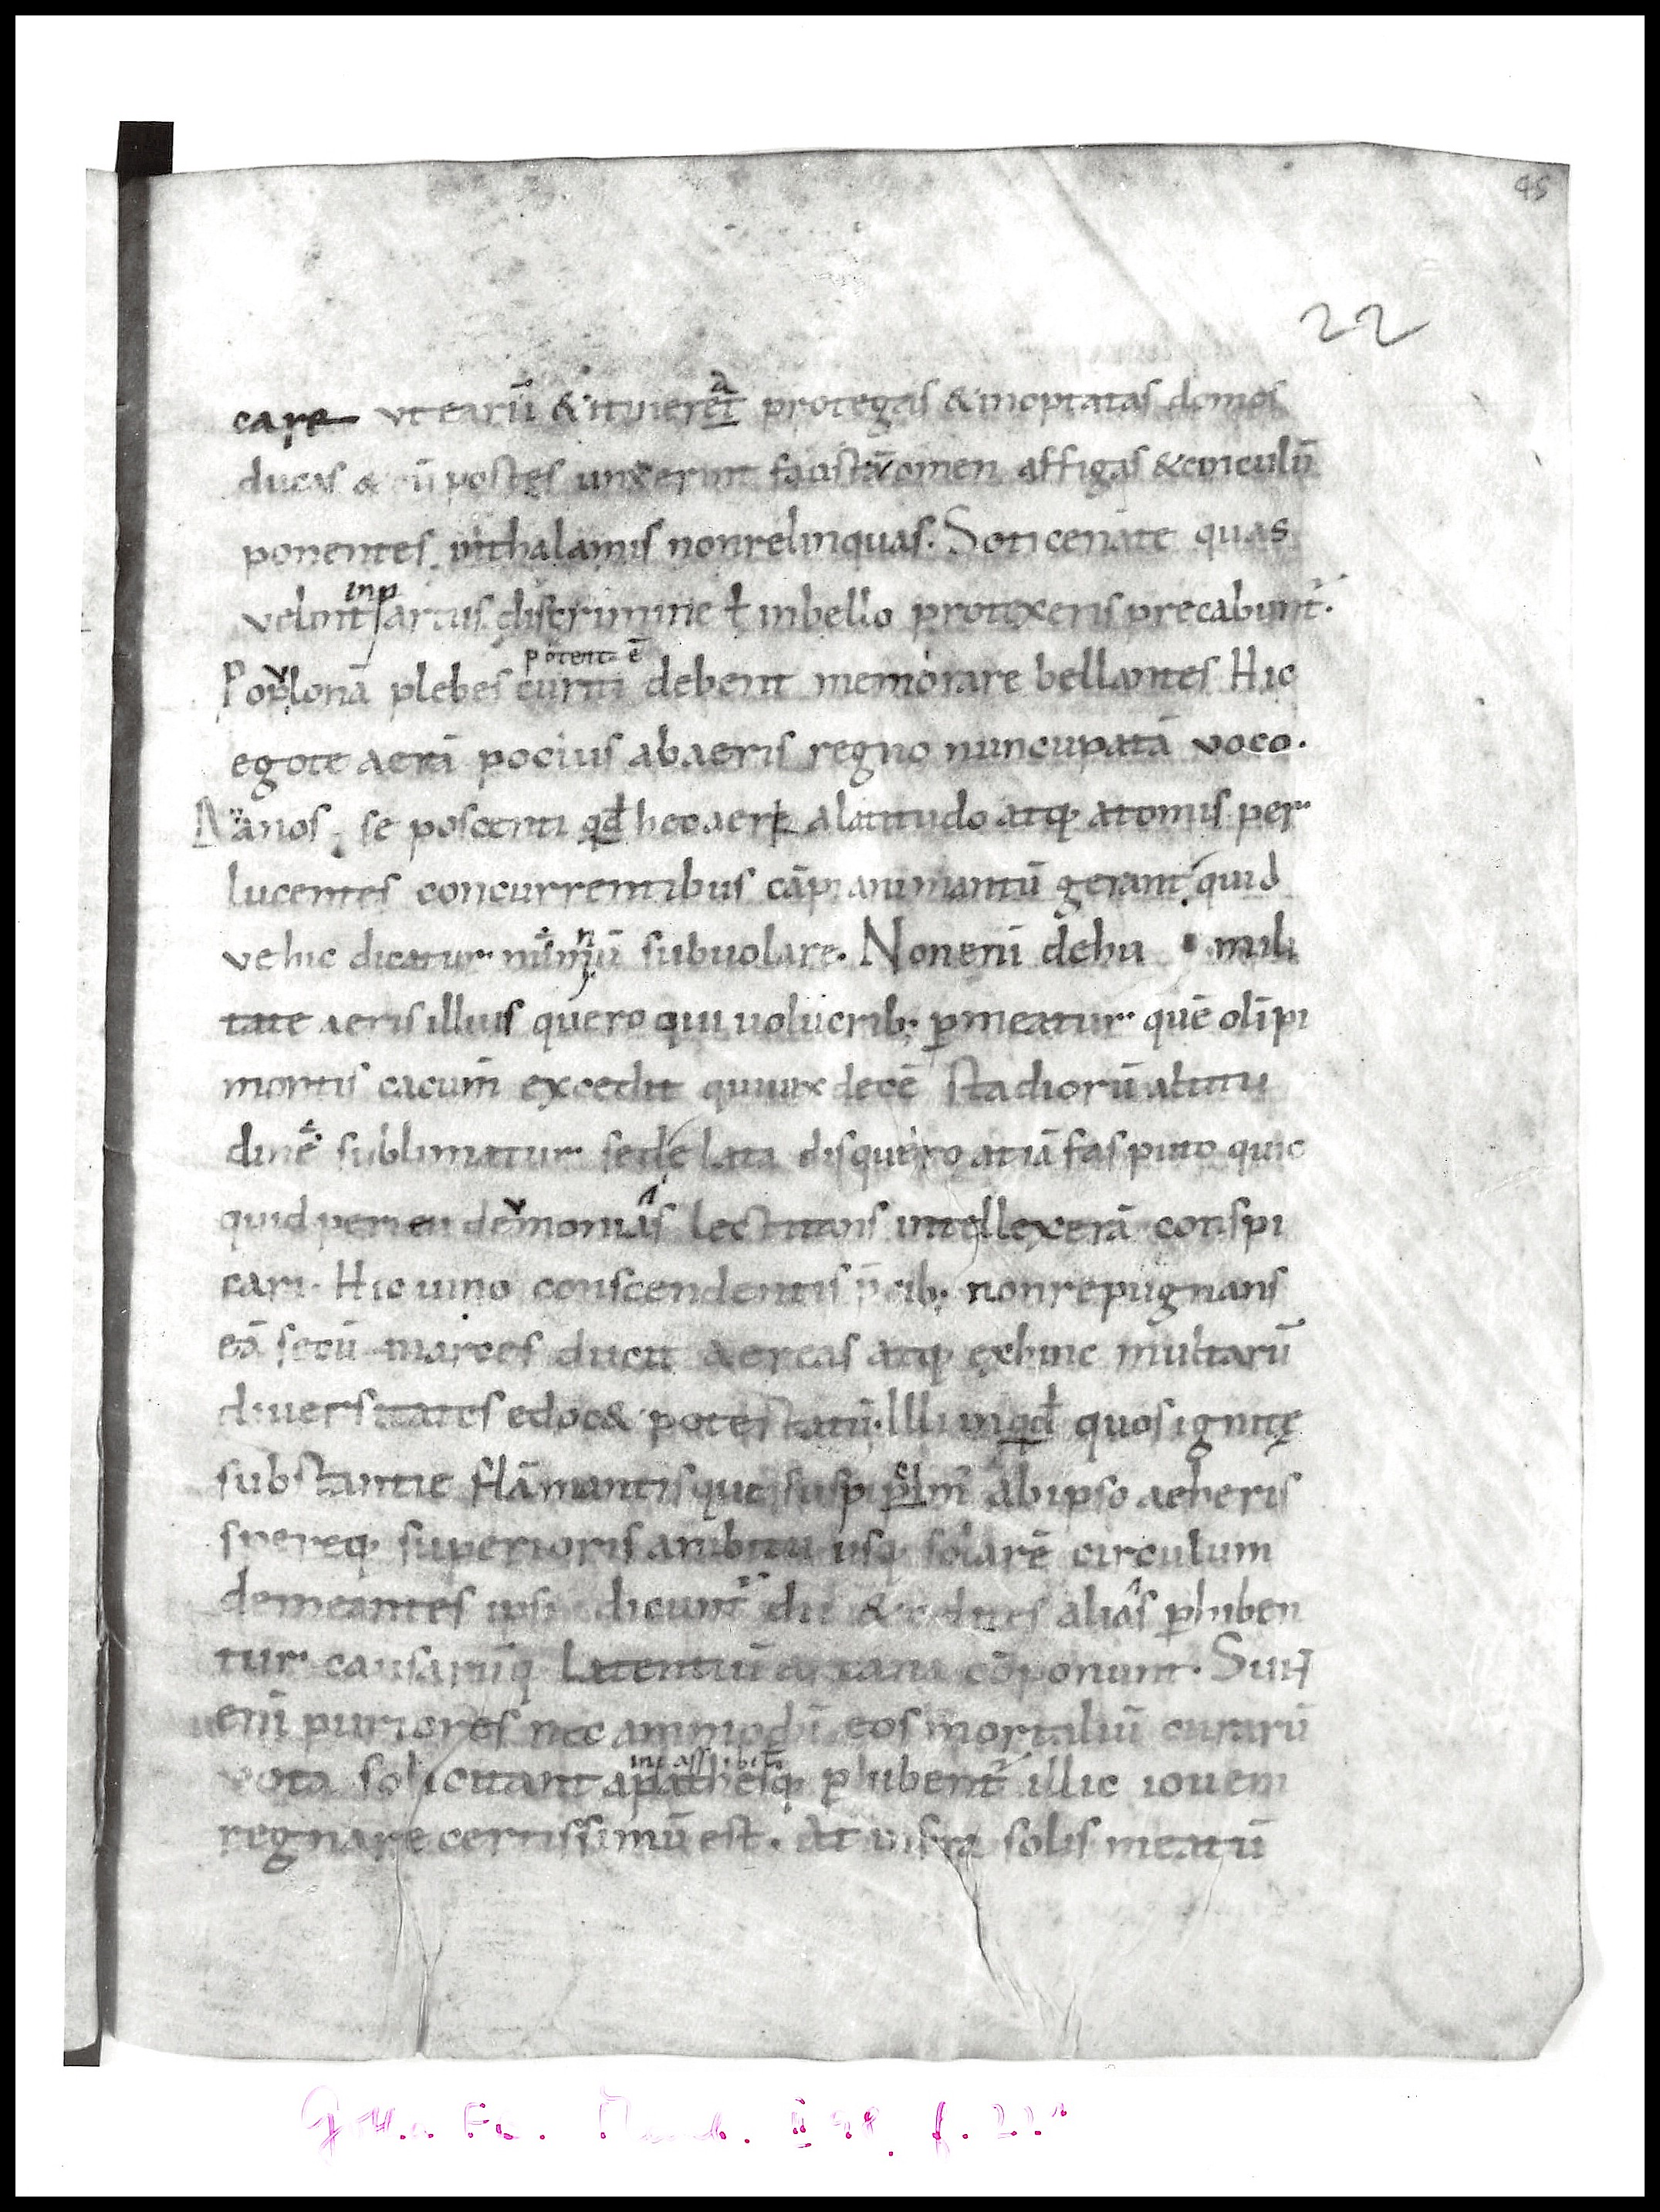 45
22
care vt earū & itinera protegas & inoptatas domos
ducas & cū postes unxerint faustū omen affigas & cinculū
ponentes inthalamis nonrelinquas. Soticenāte quas
velint inpartus discrimine ł inbello protexeris precabunt̄.
potentē
Poplonā plebes curiti debent memorare bellantes Hic
egote aerā pocius abaeris regno nuncupatā voco.
Nanos se poscenti qđ hec aeris alatitudo atq· atomis per
lucentes concurrentibus cāpi animantū gerant quid
vehic dicatur numinū subuolare. Nonenī dehu mili
tate aeris illius quero qui uolucrib; p̱meatur quē olīpi
montis cacumī excedit quiuix decē stadiorū altitu
dinē sublimatur sedelata disquero atiā fas puto quic
quid peri eudemonias lectitans intellexerā conspi
cari. Hic uino conscendentis p̄cib; nonrepugnans
eā secū in arces ducit aereas atq· exhinc multarū
diuersitates edoc& potestatū. Illi inqđ quos ignitę
substantie flāmantisque suspi abipso aetheris
spereq· superioris ambitu usq· solarē circulum
demeantes ipsi dicunt̄ dii & celites alias p̱hiben
tur causarūq· Latentiū arcana cōponunt. Sunt
enī puriores nec ammodū eos mortaliū curarū
inpassibilit̄
vota solicitant apathesq· p̱hibent̄ illic iouem
regnare certissimū est. At infra solis meatū